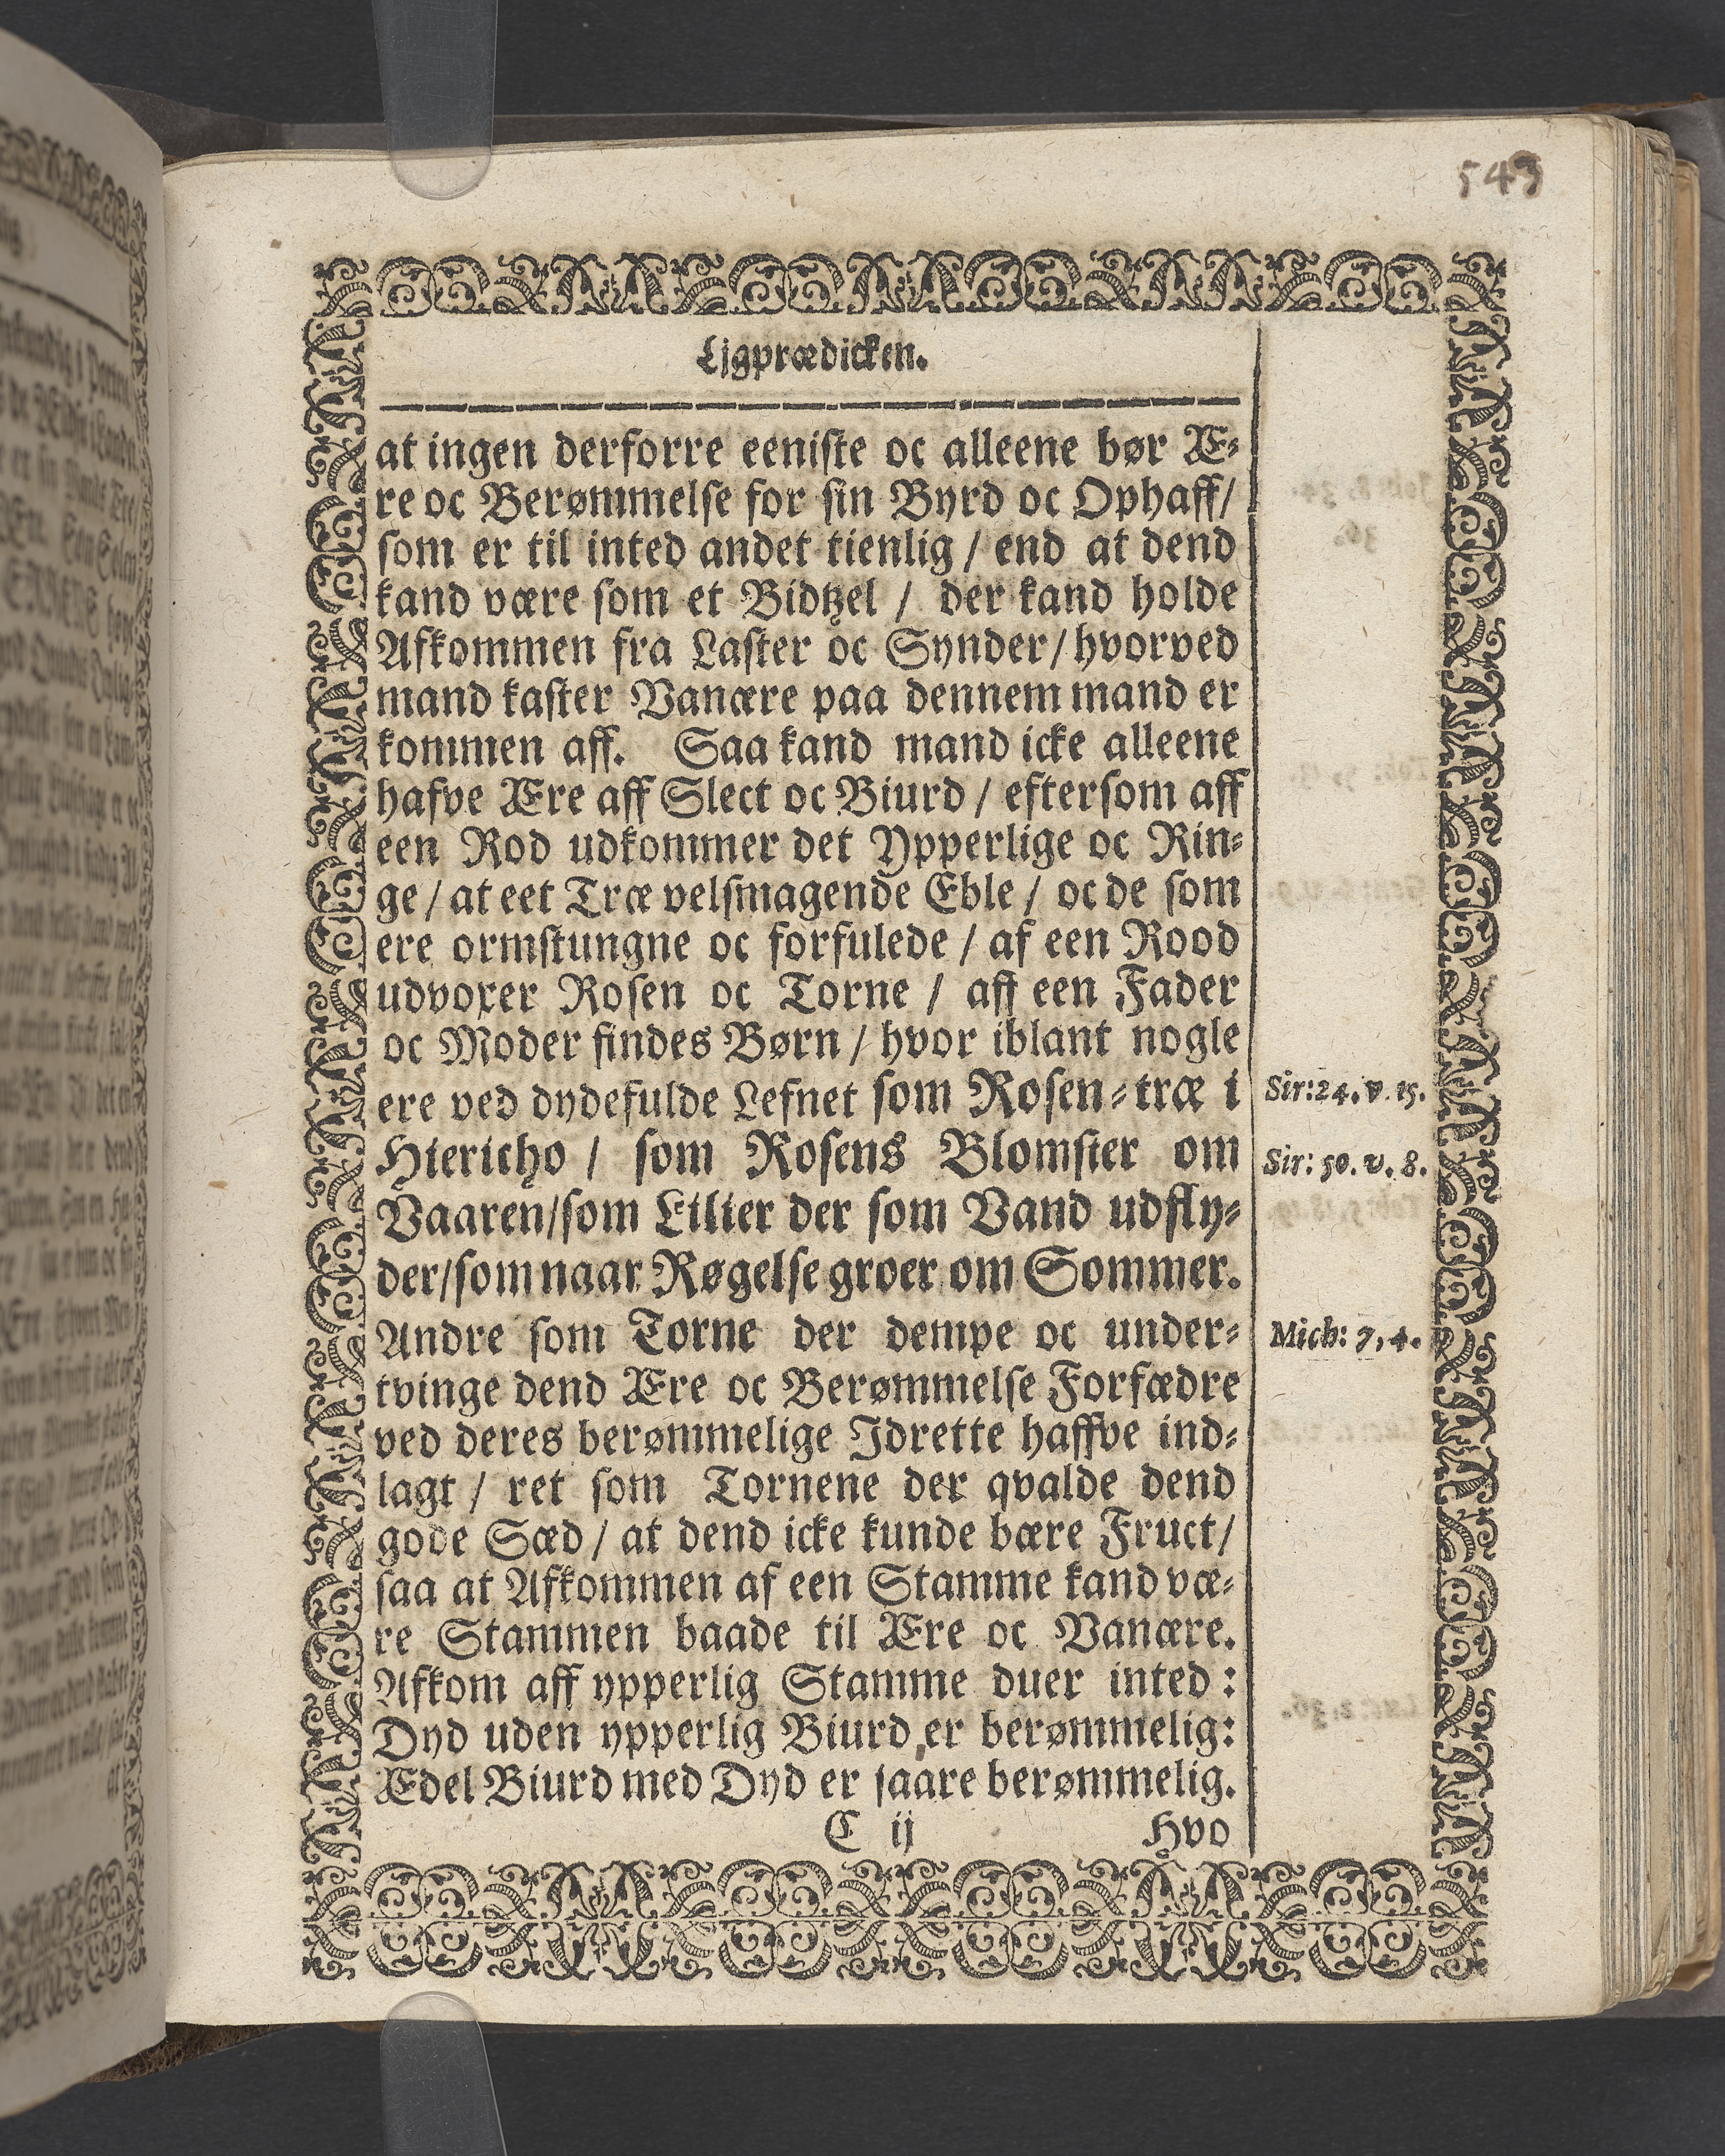 543
Ljgprædicken.
at ingen derforre eeniste oc alleene bør Æ-
re oc Berømmelse for sin Byrd oc Ophaff/
som er til inted andet tienlig / end at dend
kand være som et Bidtzel / der kand holde
Afkommen fra Laster oc Synder/hvorved
mand kaster Vanære paa dennem mand er
kommen aff. Saa kand mand icke alleene
hafve Ære aff Slect oc Biurd / eftersom aff
een Rod udkommer det Ypperlige oc Rin-
ge / at eet Træ velsmagende Eble / oc de som
ere ormstungne oc forfulede / af een Rood
udvoxer Rosen oc Torne / aff een Fader
oc Moder findes Børn / hvor iblant nogle
ere ved dydefulde Lefnet som Rosen-træ i
Sir:24. v. 15.
Hiericho / som Rosens Blomster om
Sir: 50. v. 8.
Vaaren/som Lilier der som Vand udfly-
der/som naar Røgelse groer om Sommer.
Andre som Torne der dempe oc under-
Mich: 7, 4.
tvinge dend Ære oc Berømmelse Forfædre
ved deres berømmelige Jdrette haffve ind-
lagt / ret som Tornene der qvalde dend
gode Sæd / at dend icke kunde bære Fruct/
saa at Afkommen af een Stamme kand væ-
re Stammen baade til Ære oc Vanære.
Afkom aff ypperlig Stamme duer inted :
Dyd uden ypperlig Biurd,er berømmelig:
Ædel Biurd med Dyd er saare berømmelig.
C ij Hvo